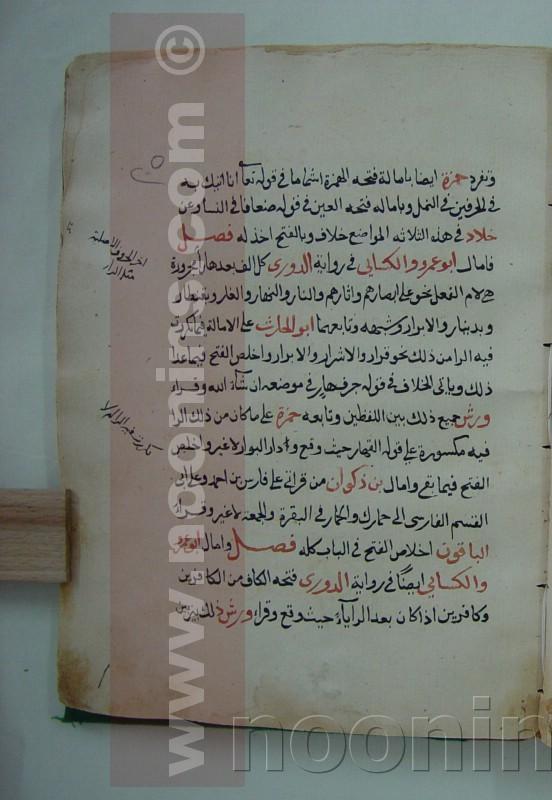 وتفرد حمزة ايضا بامالة فتحه الهمزة اشماما في قوله تعا انا اتيك به
في الحرفين في النمل وبامالة فتحه العين في قوله ضعافا في النسا وعن
خلاد في هذه الثلاثه المواضع خلاف وبالفتح اخذ له فصل
فامال ابو عمرو والكسابي في رواية الدورى كل الف بعدها را مجرورة
هي لام الفعل نحو على ابصارهم واثارهم والنار والنهار والغار وبقنطار
وبدينار والابرار وشبهه وتابعهما ابو الحارث على الامالة فيما تكررت
فيه الرا من ذلك نحو قرار والاشرار والابرار واخلص الفتح فيما عدا
ذلك وياتى الخلاف في قوله جرف هار في موضعه ان شآء الله وقراء
ورش جميع ذلك بين اللفظين وتابعه حمزة على ما كان من ذلك الرا
فيه مكسورة على قوله القهار حيث وقع ودار البوار لا غير واخلص
الفتح فيما بقى وامال بن ذكوان من قراتى على فارس بن احمد وعلى ابى
القسم الفارسى الى حمارك والحمار في البقرة والجمعة لا غير وقراء
الباقون اخلاص الفتح في الباب كله فصل وامال ابو عمرو
والكسابي ايضًا في رواية الدورى فتحه الكاف من الكافرين
وكافرين اذا كان بعد الرا يآء حيث وقع وقراء ورش ذلك بين بين
اخر الحروف الاصلية
مثل الدار
www.noorins.com ©
noorin